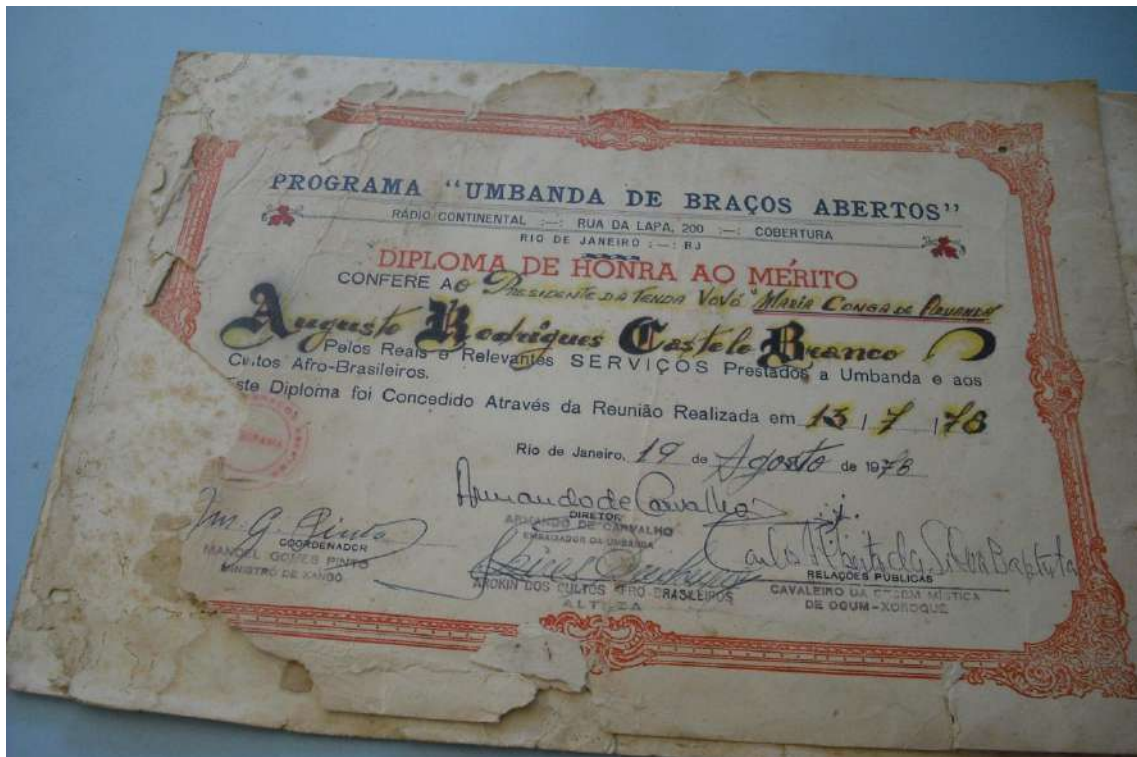 PROGRAMA "UMBANDA DE BRAÇOS ABERTOS"
RÁDIO CONTINENTAL :—: RUA DA LAPA, 200 :—: COBERTURA
RIO DE JANEIRO :—: RJ
DIPLOMA DE HONRA AO MÉRITO
CONFERE AO Presidente da Tenda Vovó "Maria Conga de
Augusto Rodrigues Castelo Branco
Pelos Reais e Relevantes SERVIÇOS Prestados a Umbanda e aos
Cultos Afro-Brasileiros.
Este Diploma foi Concedido Através da Reunião Realizada em 13 / 7 / 78
Rio de Janeiro, 19 de Agosto de 1978
Armando de Carvalho
DIRETOR
ARMANDO DE CARVALHO
EMBAIXADOR DA UMBANDA
M. G. Pinto
COORDENADOR
MANOEL GOMES PINTO
MINISTRO DE XANGÔ
AROKIN DOS CULTOS AFRO-BRASILEIROS
ALTEZA
Carlos Alberto da Silva Baptista
RELAÇÕES PÚBLICAS
CAVALEIRO DA ORDEM MÍSTICA
DE OGUM-XOROQUÊ